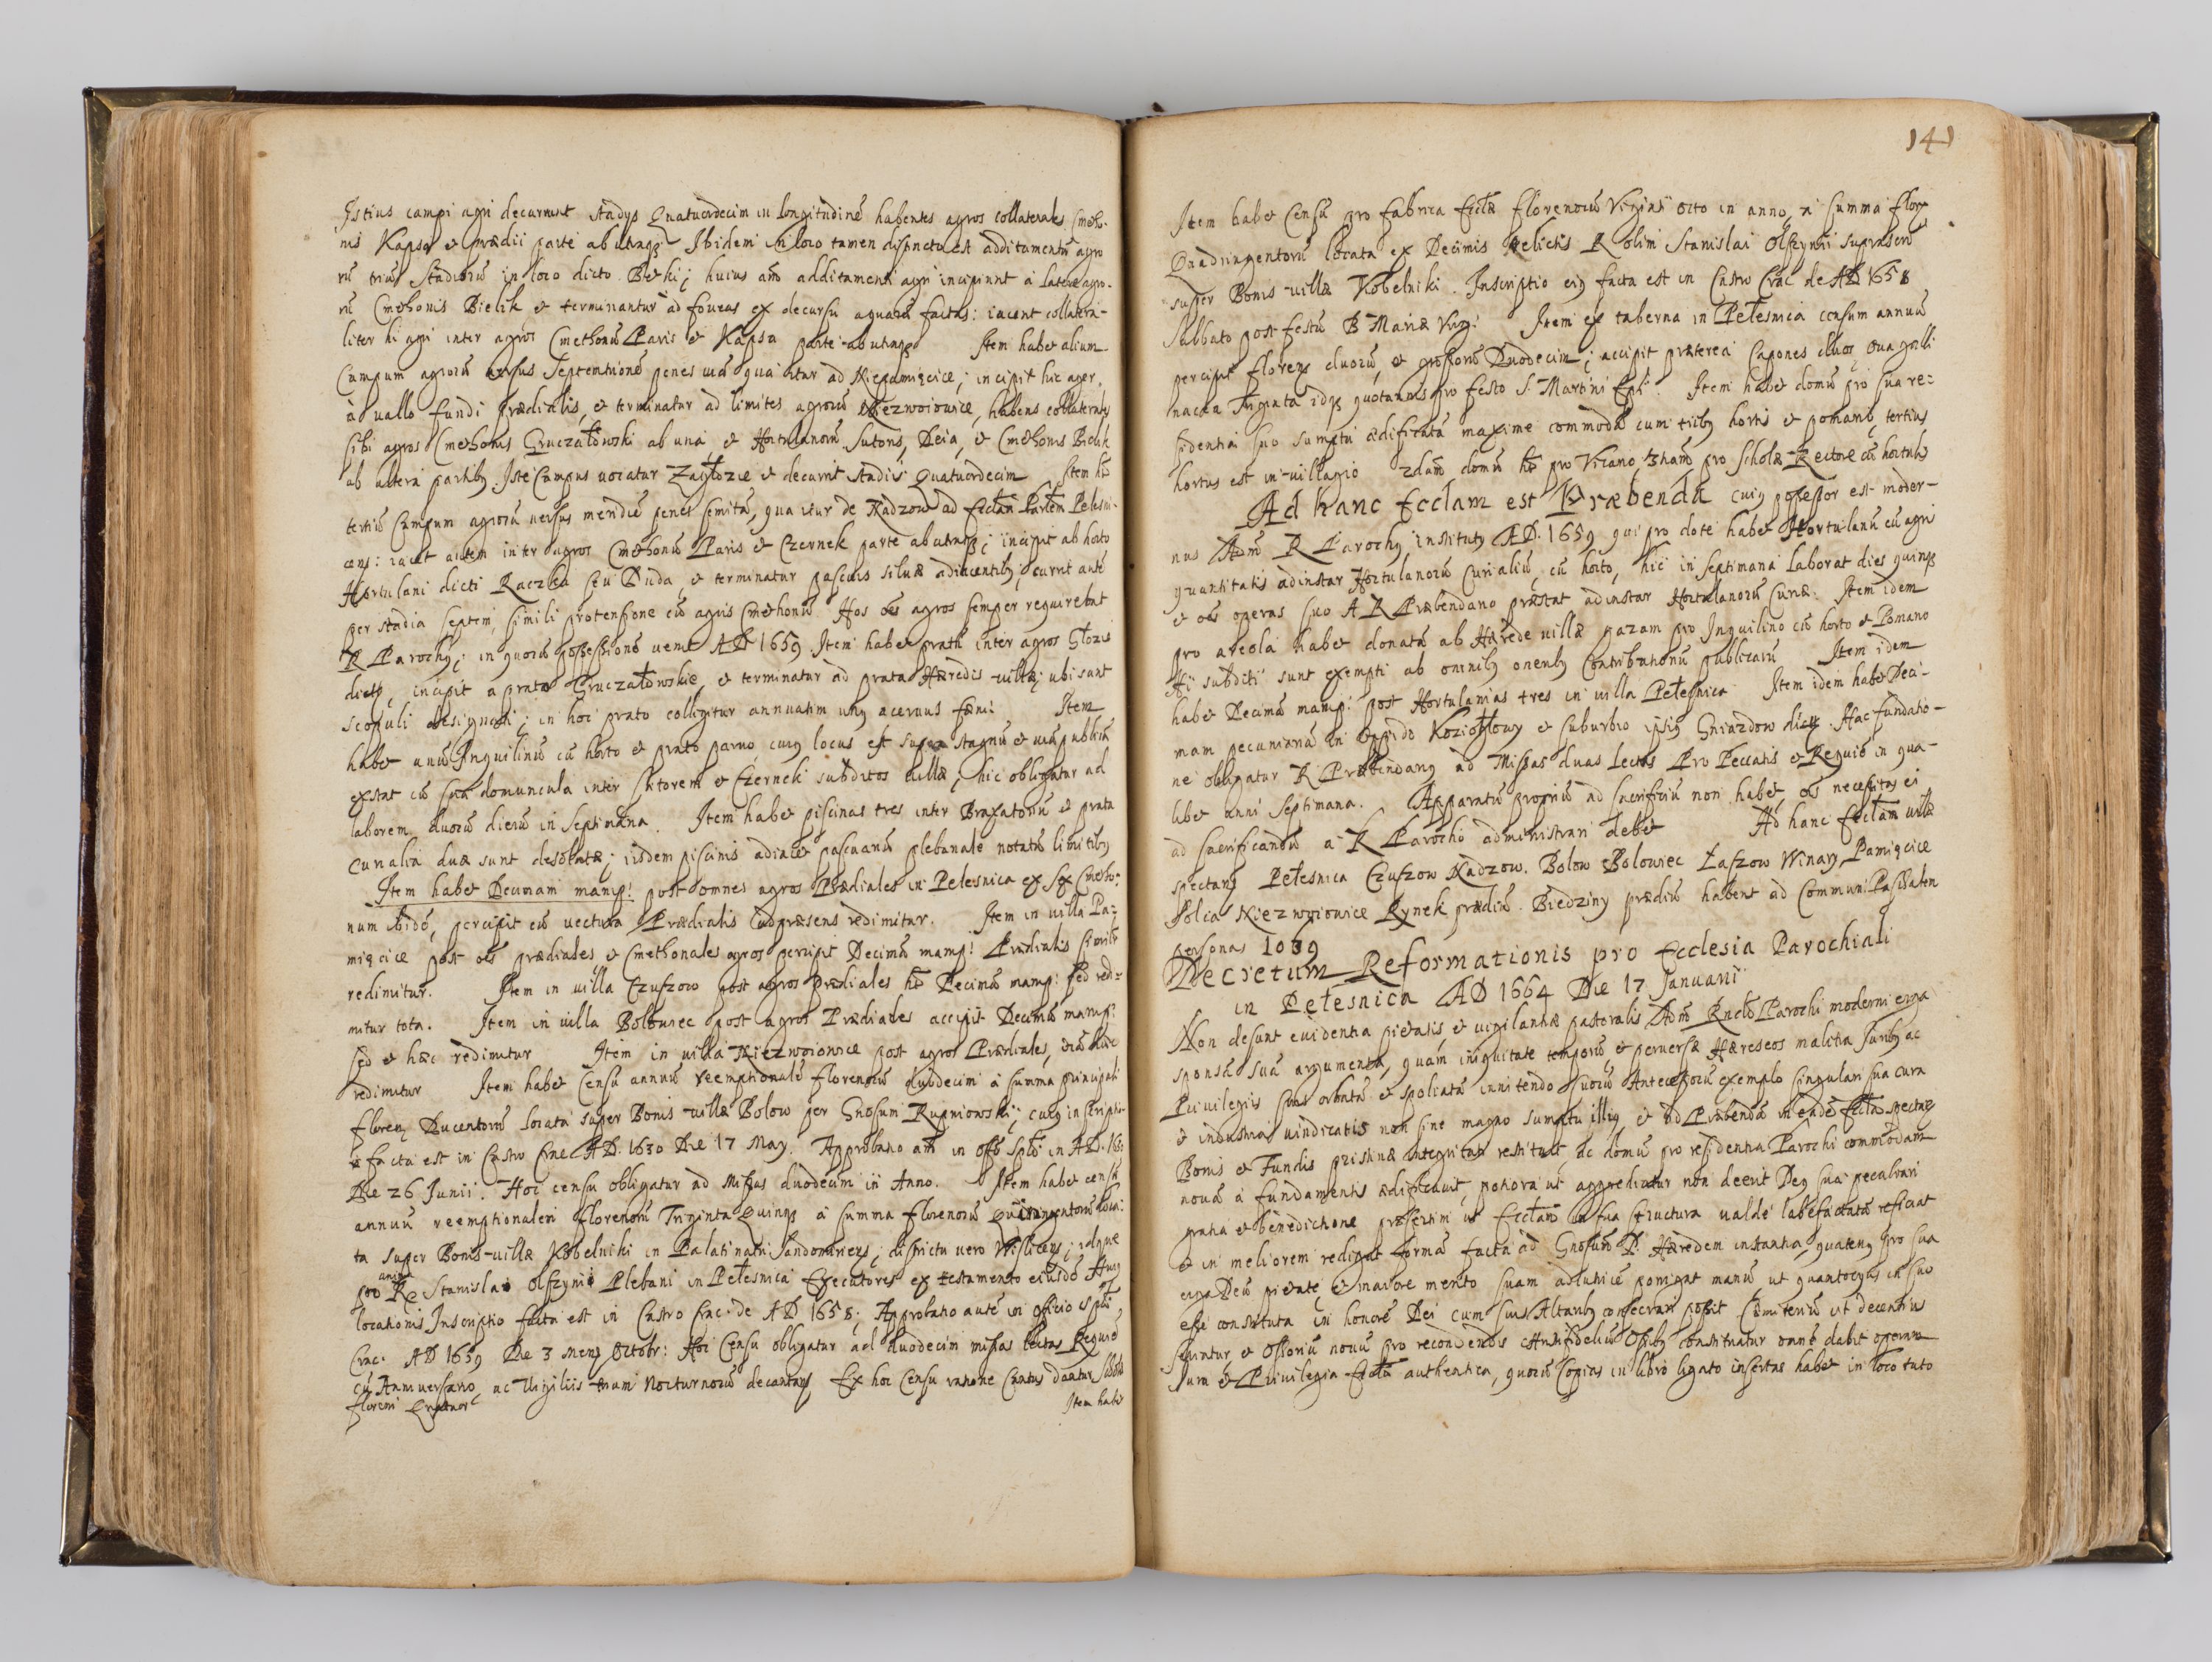 Istius campi agri decurrunt stadys Quatuordecim in longitudinē habentes agros collaterales Cmetho-
nis Kapsa et prædii parte ab utraq; Ibidem in loco tamen disiuncto est additamentū agro
rū triū stadiorū in loco dicto Berki; huius aūt additamenti agri incipiunt à latere agro-
rū Cmethonis Bielik et terminantur ad foueas ex decursu aquarū factas: iacent collatera-
liter hi agri inter agros Cmethonū Paris et Kapsa parte ab utraq; Item habet alium
Campum agrorū versus Septemtrionē penes viā qua itur ad Niepamięcice; incipit hic ager
à vallo fundi prædialis, et terminatur ad limites agrorū Niezwoiowice, habens collaterales
sibi agros Cmethonis Gruczałowski ab una, et Hortulanorū Sutoris, Deia, et Cmethonis Bielik
ab altera partibꝫ. Iste Campus vocatur Zagłozie et decurrit stadiis Quatuordecim Item hēt
tertiū Campum agrorū versus meridiē penes semitā, qua itur de Kadzow ad Eccłam Parłem Pełesni-
cens: iacet autem inter agros Cmethonū Paris et Czernek parte ab utraq;; incipit ab horto
Hortulani dicti Raczka seu Duda, et terminatur pascuis siluæ adiacentibꝫ, currit autē
per stadia septem, simili protensione cū agris Cmethonū Hos oēs agros semper requirebat
R Parochꝫ; in quorū possessionē venit AD 1659. Item habet pratū inter agros Głozie
dictꝫ, incipit a prato Gruczałowskie, et terminatur ad prata Hæredis villæ; ubi sunt
scopuli designati; in hoc prato colligitur annuatim unꝫ aceruus fæni Item
habet unū Inquilinū cū horto et prato paruo, cuiꝫ locus est supra stagnū et viā publicā
exstat cū sua domuncula inter Sutorem et Czerneki subditos villæ; hic obligatur ad
laborem duorū dierū in Septimana. Item habet piscinas tres inter Braxatoriū et prata
Curialia duæ sunt desolatæ; iisdem piscinis adiacet pascuum plebanale notatū limitibꝫ
Item habet Decimam manip: post omnes agros Prædiales in Pełesnica ex sex Cmetho-
num ibidē, percipit cū vectura Prædialis ad præsens redimitur. Item in villa Pa-
mięcice post oēs prædiales et Cmethonales agros percipit Decimā manip: Prædialis similiter
redimitur. Item in villa Czuszow post agros Prædiales hēt Decimā manip: sed redi-
mitur tota. Item in villa Bolowiec post agros Prædiales accipit Decimā manip:
sed et hæc redimitur Item in villa Niezwoiowice post agros Prædiales,
redimitur Item habet Censū annuū reemptionalē florenorū duodecim à summa principali
floreꝫ Ducentorū locatā super Bonis villæ Bolow per Gnosum Rupniowski; cuiꝫ inscriptio
facta est in Castro Crnē AD. 1630 Die 17 May. Approbatio aūt in offō Splī in AD. 163
Die 26 Junii. Hoc censu obligatur ad Missas duodecim in Anno. Item habet censū
annuū reemptionalem florenorū Triginta Quinqꝫ à summa florenorū Quingentorū loca:
ta super Bonis villæ Kobelniki in Palatinatū Sandomiriens; districtu vero Wisliciens; idque
pro anima R Stanislai Olszynii Plebani in Pełesnica Executores ex testamento eiusdē Huiꝫ
locationis Inscriptio facta est in Castro Crac: de AD 1658; Approbatio autē in officio Splī
Crac. AD 1659 Die 3 mens Octobr: Hoc Censu obligatur ad duodecim missas lectas Requiē
cū Anniversario, ac Vigiliis trium Nocturnorū decantans Ex hoc Censu ratione Cantus dantur Scholæ
floreni Quatuor
Item habet
141
Item habet Censū pro fabrica Eccłæ florenorū Viginti octo in anno, à summa flor
Quadringentorū locata ex Decimis relictis R olim Stanislai Olszynii suprascrū
super Bonis villæ Kobelniki. Inscriptio eiꝫ facta est in Castro Crac de AD 1658
Sabbato post festū B Mariæ Virg: Item ex taberna in Pełesnica censum annuū
percipit florens duorū, et grossorū Duodecim; accipit præterea Capones duos, ova galli
nacea Triginta idqꝫ quotannis pro festo S. Martini Epī. Item habet domū pro sua re-
sidentia suo sumptu ædificatā maxime commodā cum tribꝫ hortis et pomariis tertius
hortus est in villagio 2dam domū hēt pro Vicario, 3tiam pro Scholæ Rectore cū hortulis
Ad hanc Eccłam est Præbenda cuiꝫ possessor est moder-
nus Adm R Parochꝫ institutꝫ AD. 1659 qui pro dote habet Hortulanū cū agri
quantitatis ad instar Hortulanorū Curialiū, cū horto, hic in septimana laborat dies quinqꝫ
et oēs operas suo A R Præbendario præstat ad instar Hortulanorū Curiæ. Item idem
pro areola habet donatā ab Hærede villæ gazam pro Inquilino cū horto et Pomario
Hi subditi sunt exempti ab omnibꝫ oneribꝫ Contributionū publicarū Item idem
habet Decimā manip: post Hortulanias tres in villa Pełesnica Item idem habet Deci-
mam pecuniariā in oppido Koziołłowy et suburbio ipsiꝫ Gniazdow dict. Hac fundatio-
ne obligatur R Præbendarꝫ ad Missas duas lectas Pro Peccatis et Requiē in qua-
libet anni septimana. Apparatū propriū ad sacrificiū non habet, oēs necessitas ei
ad sacrificandū à R Parocho administrari debet Ad hanc Eccłam villæ
spectant Pełesnica Czuszow Kadzow. Bolow Bolowiec Łaszow Winary Pamięcice
Polia Niezwoiowice Rynek prædiū. Biedziny prædiū habent ad Communi Paschalem
personas 1069
Decretum Reformationis pro Ecclesia Parochiali
in Pełesnica AD 1664 Die 17 Januarii
Non desunt evidentia pietatis, et vigilantiæ pastoralis Adm Rndi Parochi moderni erga
sponsā suā argumenta, quam iniquitate temporū et perversæ Hæreseos malitia Juribꝫ ac
Privilegiis suis orbatā et spoliatā innitendo suorū Antecessorū exemplo singulari sua cura
et industria vindicatis non sine magno sumptu illiꝫ et ad Præbendā in eadē Eccła spectans
Bonis et Fundis pristinæ integritati restituit, ac domū pro residentia Parochi commodam
novā à fundamentis ædificavit, potiora ut aggrediatur non deerit Deꝫ sua peculiari
gratia et benedictione præsertim ut Eccłam in sua structura valde labefactatā reficiat
et in meliorem redigat formā facta ad Gnosum D. Hæredem instantia, quatenꝫ pro sua
erga Deū pietate, et maiore merito suam adiutricē porrigat manū ut quantocyus in suo
esse constituta in honorē Dei cum suis Altaribꝫ consecrari possit Cæmiteriū ut decentius
sepiatur et Ossoriū novū pro recondendis Christi fidelium Ossibꝫ construatur omnē dabit operam
Jura et Privilegia Eccłæ authentica, quorū Copias in libro ligato insertas habet in loco tuto